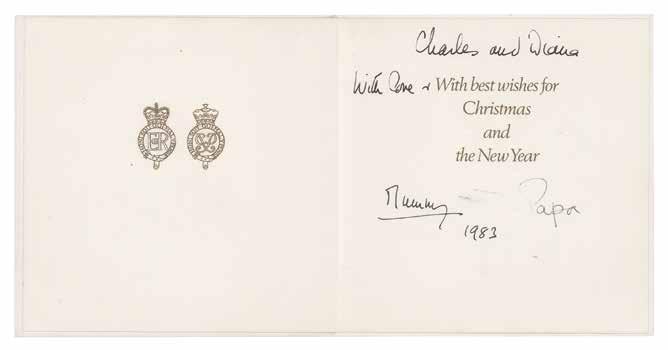 Charles and Diana
With love + With best wishes for
Christmas
and
the New Year
Mummy Papa
1983
EIIR